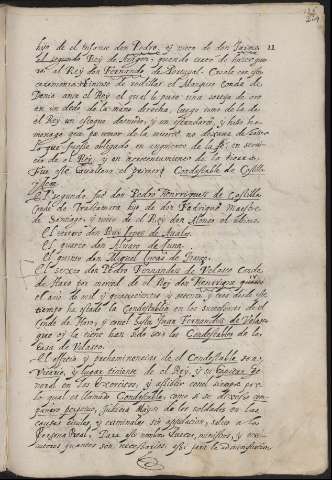 hijo de el Infante don Pedro, y nieto de don Jaime 22
el segundo Rey de Aragon: quando
el Rey don Fernando de Portugal.
de rodillas el Marques Conde de
Denia ante el Rey el qual le puso una sortija de oro
en un dedo de la mano derecha, luego tomo de la de
el Rey un estoque desnudo, y un estandarte, y hizo
menage que por temor de la muerte no dexaria de
lo que fuesse obligado, en de la fe, en servi
cio de el Rey, y en acrecentamiento de la tierra.
el primero Condestable de Castilla
y Leon.
El segundo fue don Pedro Henrriquez de Castilla
Conde de Trastamara hijo de don Fadrique Maestre
de Santiago, y nieto de el Rey don Alonso el ultimo.
El tercero don Ruy Lopez de Avalos.
El quarto don Alvaro de Luna.
El quinto don Miguel Lucas de Iranzu.
El sexto don Pedro Fernandez de Velasco Conde
de Haro por merced de el Rey don Henrrique quarto
el año de mil y quatrocientos y setenta, y tres desde este
tiempo ha estado la Condestablia en los sucessores de el
Conde de Haro, y con el Juan Fernandez de Velasco
que oy es vienen han sido seis los Condestables de la
casa de Velasco.
El officio y preheminencias de el Condestable son,
Vicario, y lugar tiniente de el Rey, y su Capitan Ge
neral en los Exercitos, y assistir con el siempre por
lo qual es llamado Condestable, como si se dixesse com
pañero perpetuo, Justicia Mayor de los soldados en las
causas civiles, y criminales sin appelacion, salvo a la
Persona Real. Para esto nombra Jueces, ministros, y exe
cutores quantos son necessarios, assi para la administracion